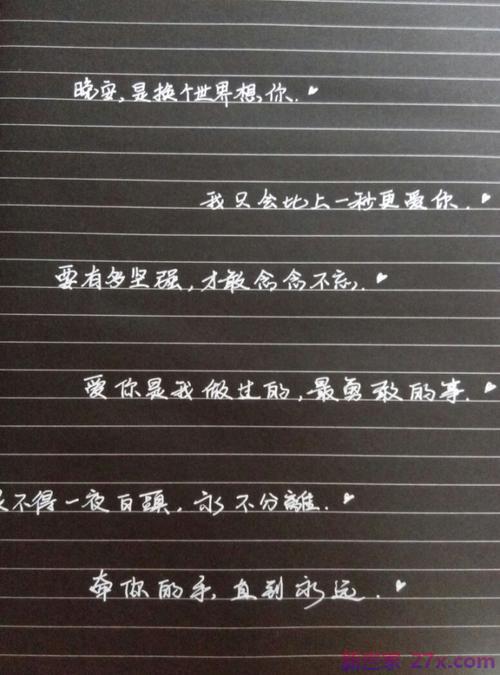 晚安,是换个世界想,你.
我只会比上一秒更爱你.
要有多坚强,才敢念念不忘.
爱你是我做过的,最勇敢的事.
不得一夜白頭,永不分離.
牵你的手,直到永远.
27x.com